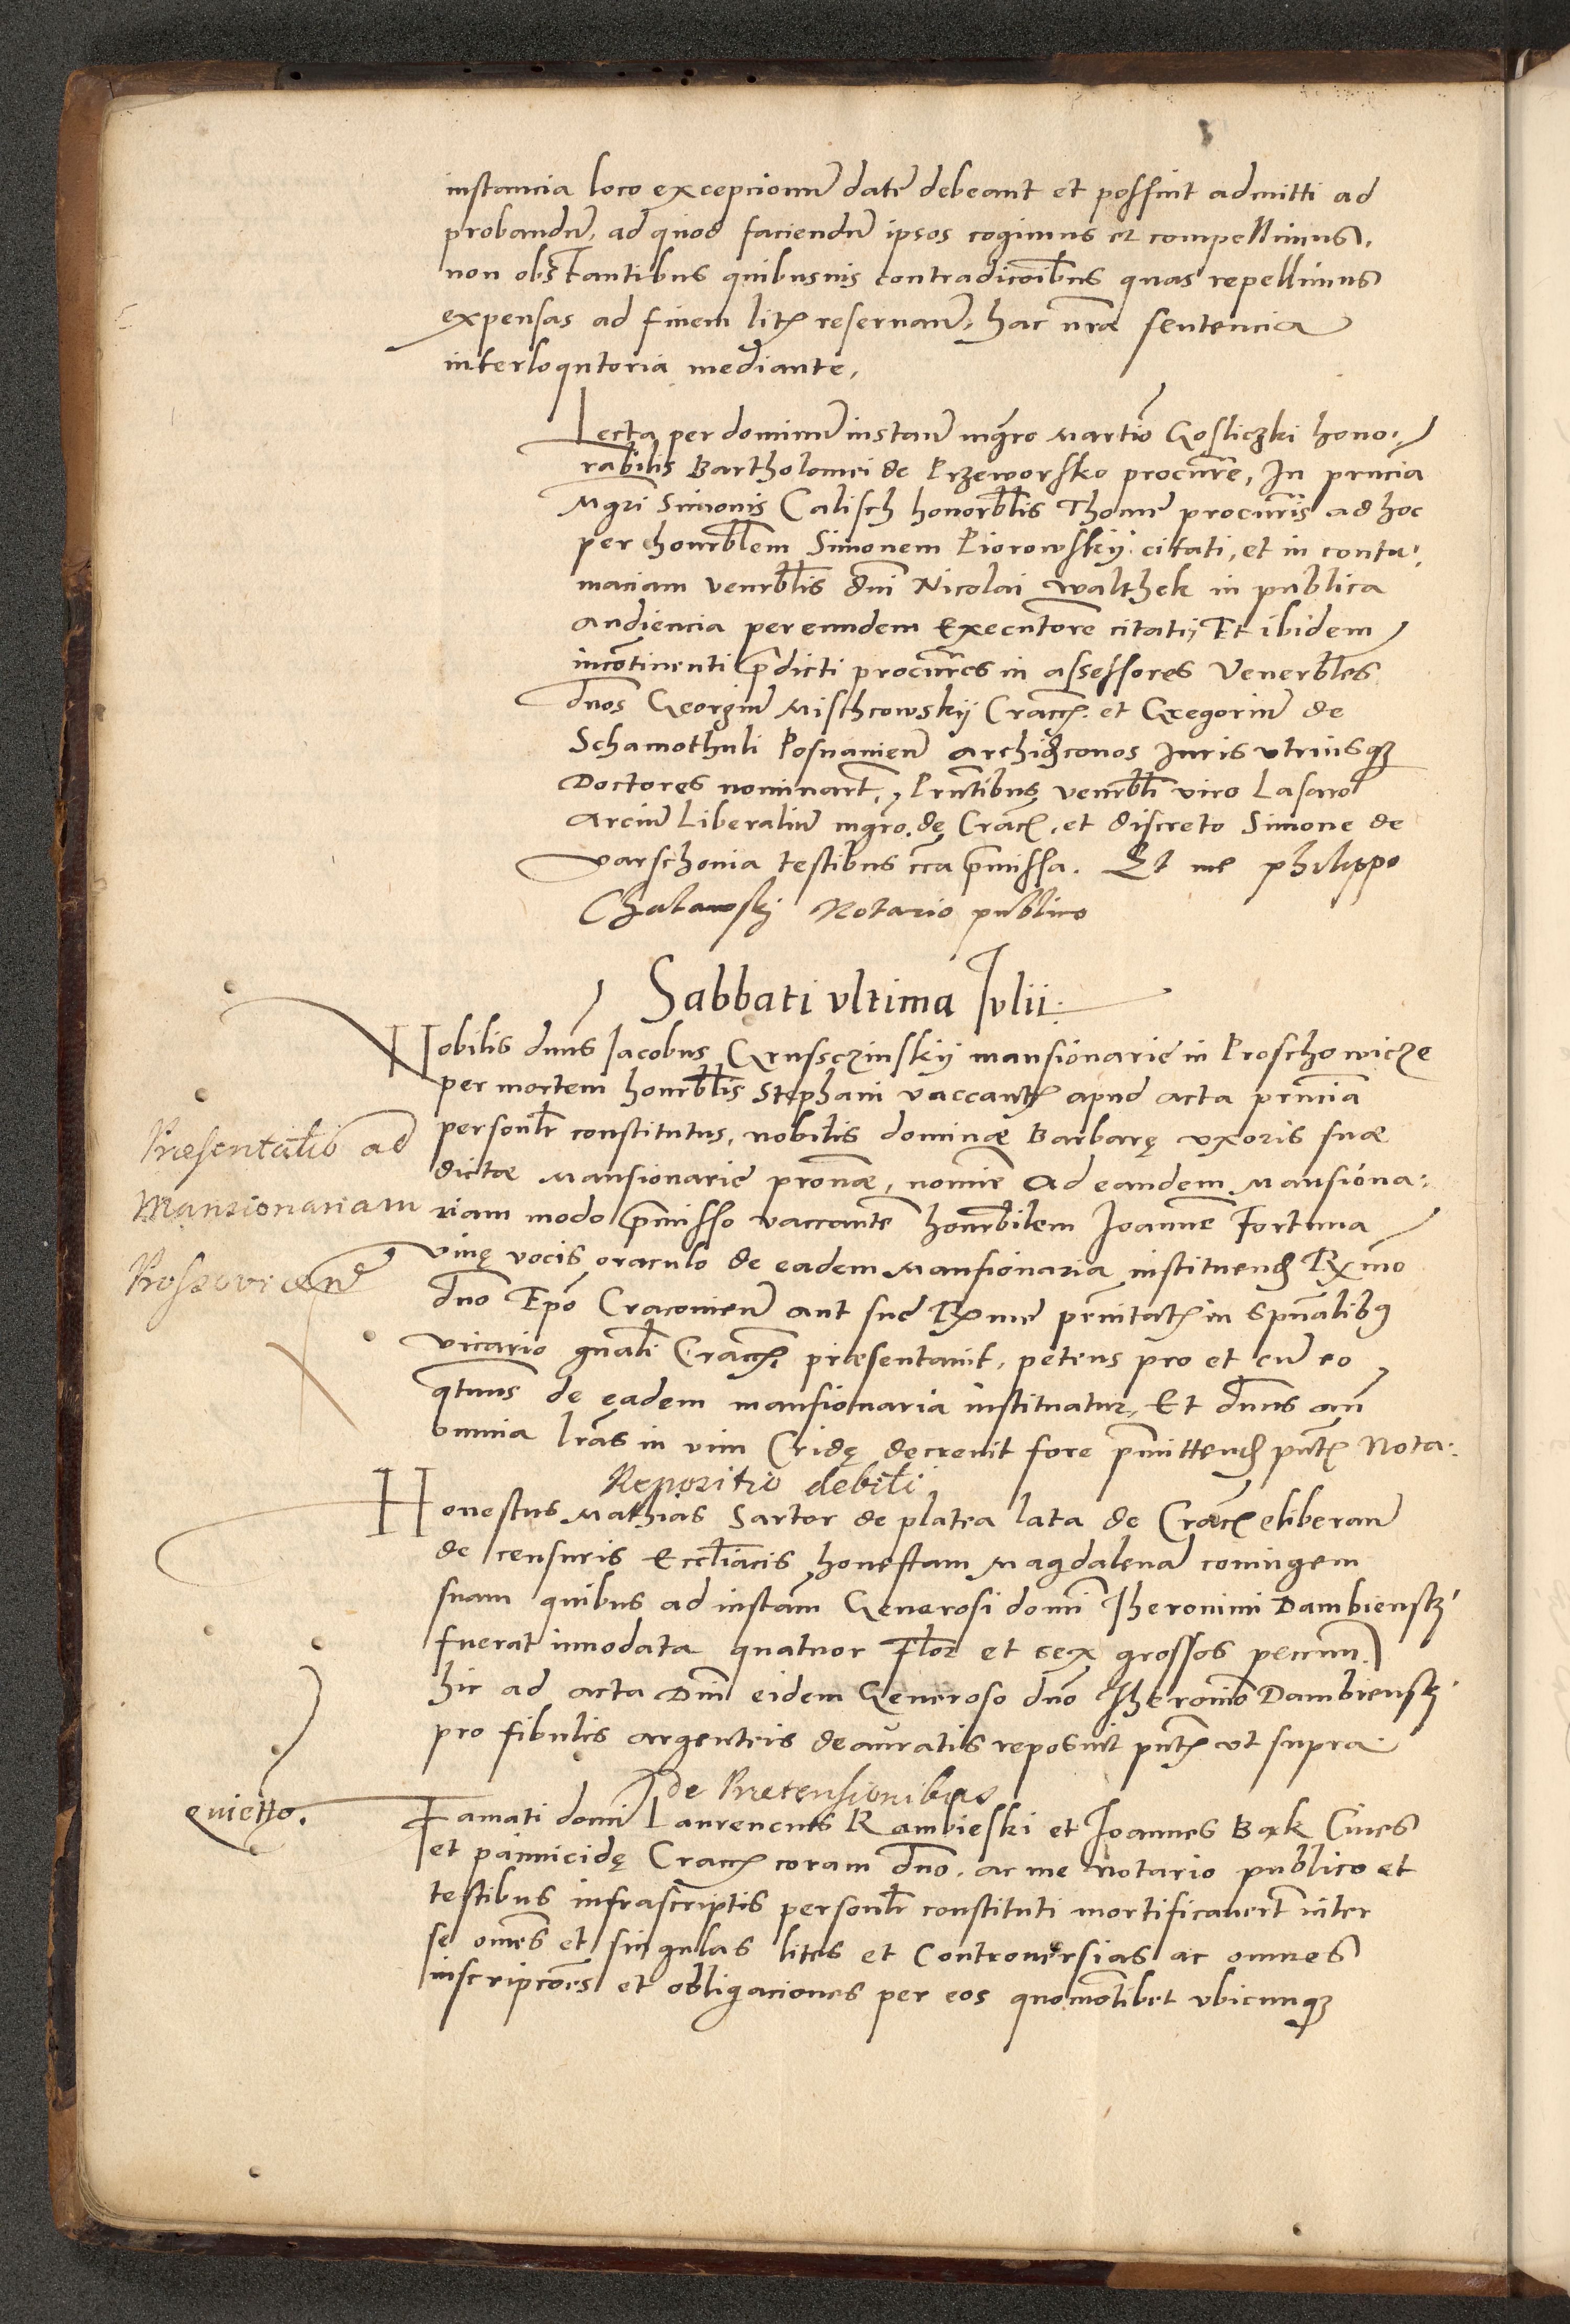 instancia loco excepcionum datę debeant et possint admitti ad
probandum, ad quod faciendum ipsos cogimus et compellimus,
non obstantibus quibusuis contradiccoibus quas repellimus
expensas ad finem litis reseruan, hac nrã sentencia
interloqutoria mediante,
Lecta per dominum instan mgro Martino Gosliczki hono:
rabilis Bartholomei de Przeworsko procure, In pncia
Mgri Simonis Calisch honorblis Thome procuris ad hoc
per honrblem Simonem Piorowskij citati, et in contu:
maciam venrblis dni Nicolai Walthek in publica
audiencia per eundem Executorem citati, Et ibidem
incontinenti pdicti procures in assessores Venerbles
dnos Georgium Mischcowskij Cracc. et Gregorium de
Schamothuli Posnanien archidconos Iuris vtriusq
Doctores nominarunt, Pntibus venrbli viro Lasaro
Arcium Liberalium mgro de Crac, et discreto Simone de
Varschouia testibus cca pmissa. Et me philippo
Chalawskj Notario publico
Sabbati vltima Iulii
Nobilis dnus Iacobus Grussczinskij mansionarie in Proschowicze
per mortem honrblis Stephani vaccantis apud acta pntia
personlr constitutus, nobilis dominæ Barbarę vxoris suæ
Presentatio ad
dictæ Mansionarie pronæ, nomine Ad eandem Mansiona:
Mansionariam
riam modo pmisso vaccantem honrbilem Ioannem Fortuna
viuę vocis oraculo de eadem Mansionaria instituend Rmo
dno Epo Cracouien aut sue Rme pnitatis in spualibus
vicario gnali Cracc. præsentauit, petens pro et cum eo
qtinus de eadem mansionaria instituatur, Et dnus an
omnia lras in vim Cridę decreuit fore pmittend pntibus Nota:
Repositio debiti
Honestus Mathias Sartor de platea lata de Crac eliberan
de censuris Eccliacis honestam Magdalenam coniugem
suam quibus ad instam Generosi domi Iheronimi Dambienskj
fuerat innodata quatuor Flor et sex grossos pecun
hic ad acta Dni eidem Generoso dno Iheronimo Dambienskj
pro fibulis argenteis deauratis reposuit pntibus vt supra
de Pretensionibus
quietto.
Famati domi Laurencius Rambieski et Ioannes Bąk Ciues
et pannicidę Cracc coram dno. ac me notario publico et
testibus infrascriptis personlr constituti mortificauert inter
se omes et singulas lites et Controuersias ac omnes
inscripcoes et obligaciones per eos quomolibet vbicunq